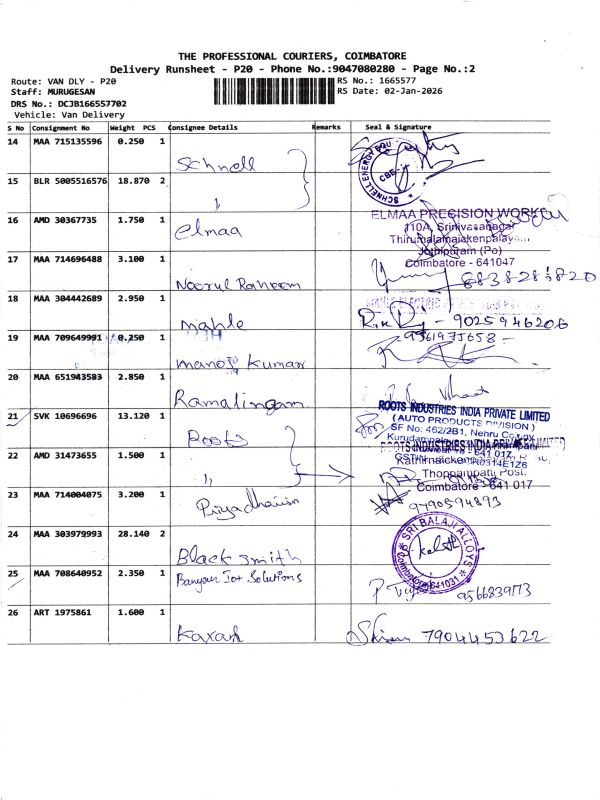 THE PROFESSIONAL COURIERS, COIMBATORE
Delivery Runsheet - P20 - Phone No.:9047080280 - Page No.:2
Route: VAN DLY - P20
RS No.: 1665577
Staff: MURUGESAN
RS Date: 02-Jan-2026
DRS No.: DCJB166557702
Vehicle: Van Delivery
S No Consignment No Weight PCS Consignee Details Remarks Seal & Signature
14 MAA 715135596 0.250 1 Schnell
SCHNELL ENERGY EQU
CBE
15 BLR 5005516576 18.870 2 "
16 AMD 30367735 1.750 1 elmaa
ELMAA PRECISION WORKS
110A, Srinivasanagar
Thirumalamaickenpalayam
Jothipuram (Po)
Coimbatore - 641047
17 MAA 714696488 3.100 1 Noorul Raheem
18 MAA 304442689 2.950 1 mahle
9025946206
19 MAA 709649991 0.250 1 manoj kumar
20 MAA 651943583 2.850 1 Ramalingam
21 SVK 10696696 13.120 1 Roots
ROOTS INDUSTRIES INDIA PRIVATE LIMITED
(AUTO PRODUCTS DIVISION)
SF No: 462/2B1, Nehru
22 AMD 31473655 1.500 1 "
ROOTS INDUSTRIES INDIA PRIVATE LIMITED
Thoppampatti Post.
Coimbatore - 641 017
23 MAA 714004075 3.200 1
9790594893
24 MAA 303979993 28.140 2 Blacksmith
SRI BALAJI ALLOYS
Coimbatore-641031
25 MAA 708640952 2.350 1 Solutions
26 ART 1975861 1.600 1
7904453622